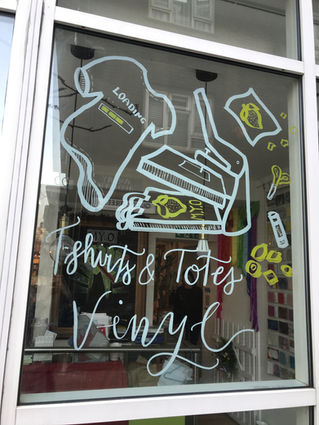 LOADING
OYO
T-shirts & Totes
Vinyl